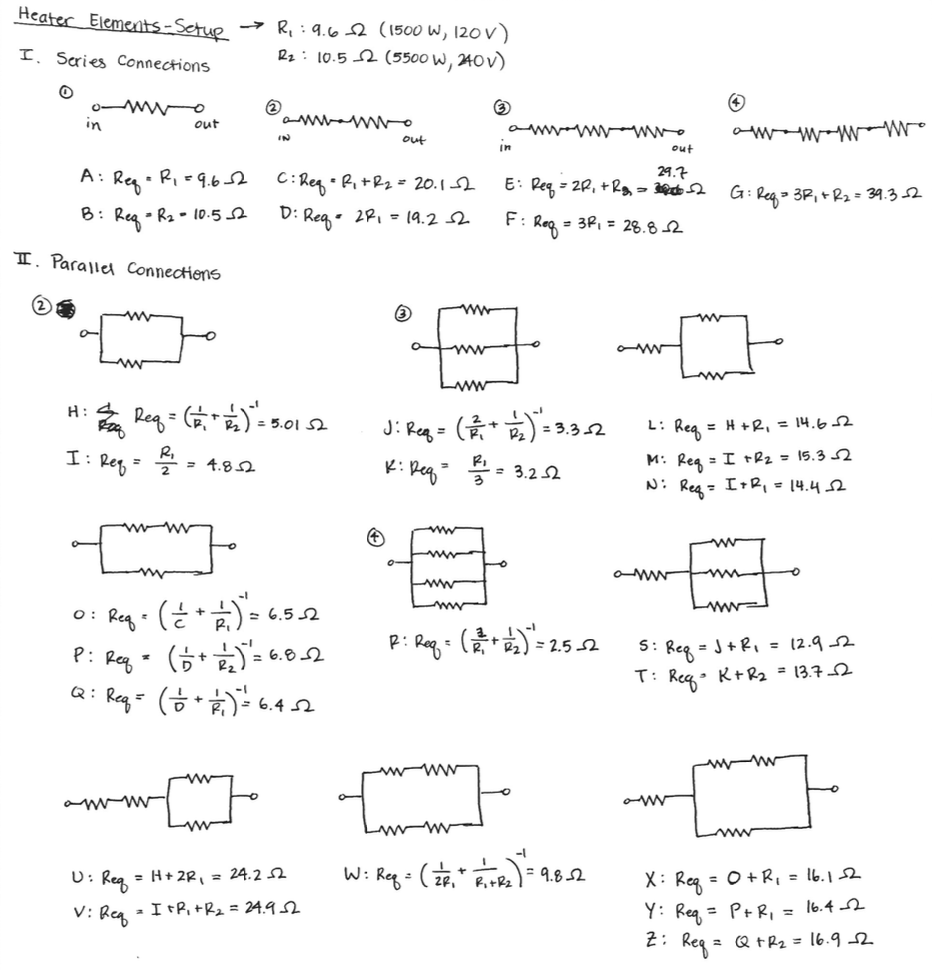 Heater Elements - Setup → R₁ : 9.6 Ω (1500 W, 120 V)
R₂ : 10.5 Ω (5500 W, 240 V)
I. Series Connections
① ② ③ ④
in out IN out in out
A: Req = R₁ = 9.6 Ω
B: Req = R₂ = 10.5 Ω
C: Req = R₁ + R₂ = 20.1 Ω
D: Req = 2R₁ = 19.2 Ω
E: Req = 2R₁ + R₂ = 29.7 Ω
F: Req = 3R₁ = 28.8 Ω
G: Req = 3R₁ + R₂ = 39.3 Ω
II. Parallel Connections
②
H: Req = (1/R₁ + 1/R₂)⁻¹ = 5.01 Ω
I: Req = R₁/2 = 4.8 Ω
③
J: Req = (2/R₁ + 1/R₂)⁻¹ = 3.3 Ω
K: Req = R₁/3 = 3.2 Ω
L: Req = H + R₁ = 14.6 Ω
M: Req = I + R₂ = 15.3 Ω
N: Req = I + R₁ = 14.4 Ω
O: Req = (1/C + 1/R₁)⁻¹ = 6.5 Ω
P: Req = (1/D + 1/R₂)⁻¹ = 6.8 Ω
Q: Req = (1/D + 1/R₁)⁻¹ = 6.4 Ω
④
R: Req = (3/R₁ + 1/R₂)⁻¹ = 2.5 Ω
S: Req = J + R₁ = 12.9 Ω
T: Req = K + R₂ = 13.7 Ω
U: Req = H + 2R₁ = 24.2 Ω
V: Req = I + R₁ + R₂ = 24.9 Ω
W: Req = (1/2R₁ + 1/R₁+R₂)⁻¹ = 9.8 Ω
X: Req = O + R₁ = 16.1 Ω
Y: Req = P + R₁ = 16.4 Ω
Z: Req = Q + R₂ = 16.9 Ω